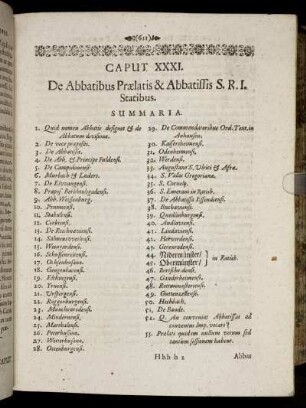 (611)
CAPUT XXXI.
De Abbatibus Prælatis & Abbatissis S. R. I.
Statibus.
SUMMARIA.
1. Quid nomen Abbatis designat & de
Abbatum divisione.
2. De voce prægressu.
3. De Abbatissa.
4. De Abb. & Principe Fuldensi.
5. De Campidonensi
6. Murbach & Luders.
7. De Elwangensi.
8. Præpos. Berchtolsgadensi.
9. Abb. Weissenburg.
10. Prumiensi.
11. Stabulensi.
12. Corbeiensi.
15. Wein
18. Elchingensi.
20. Irsensi.
21. Ursbergensi.
22. Roggenburgensi.
23. Münchrodensi.
24. Mindensi.
25. Marchtalensi.
26. Petershusano.
27. Wettenhusano.
28. Gutenburgensi.
29. De Commendatoribus Ord. Teut. in
Anhausen.
30. Kaisersheimensi.
31. Odenheimensi.
32. Werdensi.
33. Augustano S. Ulrici & Afræ.
34. S. Vallis Gregorianæ.
35. S. Cornelii.
36. S. Emeran in Ratisb.
37. De Abbatissa Essendiensi.
38. Buchaviensi.
39. Quedlinburgensi.
40. Andlaviensi.
41. Lindaviensi.
42. Hervordensi.
43. Gerenrodensi.
44. Niedermünster
45. Obermünster in Ratisb.
47. Ganderheimensi.
48. Rottenmünsterensi.
49. Guttenzellensi.
50. Heckbach.
51. De Baindt.
52. Q. An conveniat Abbatissas ad
conventus Imp. vocari?
53. Prælati quidem unicum votum sed
sessionem habent.
Hhhh 2
Abbas